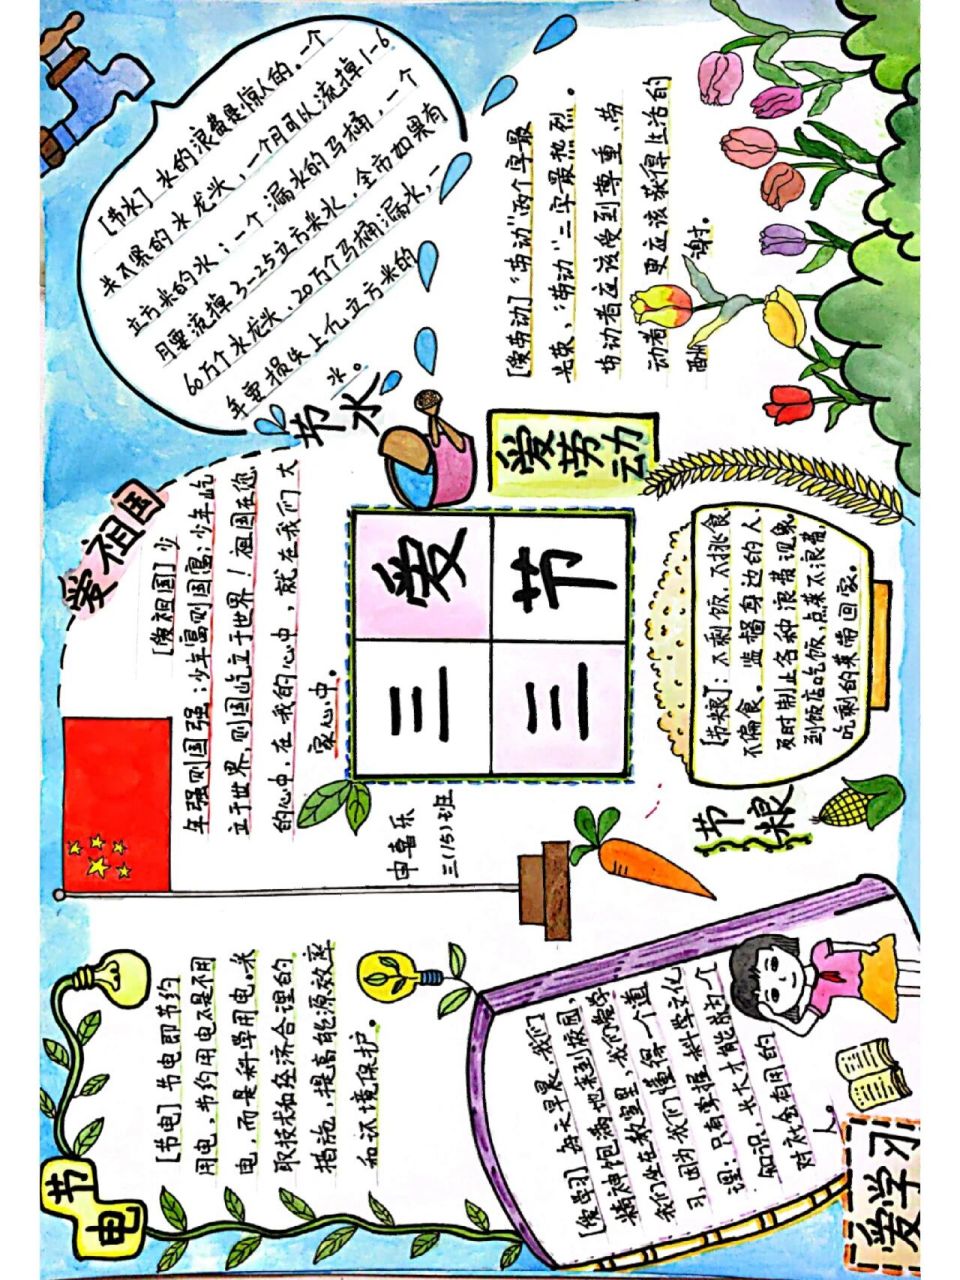 节电
[节电] 节电即节约
用电，节约用电不是不用
电，而是科学用电。采
取技术和经济合理的
措施，提高能源效率
和环境保护。
爱祖国
[爱祖国] 少
年强则国强；少年富则国富；少年屹
立于世界，则国屹立于世界！祖国在您
的心中，在我的心中，就在我们大
家心中。
节水
[节水] 水的浪费是惊人的。一个
关不紧的水龙头，一个月可以流掉1-6
立方米的水；一个漏水的马桶，一个
月要流掉3-25立方米水，全市如果有
60万个水龙头、20万个马桶漏水，一
年要损失上亿立方米的
水。
申嘉乐
三(15)班
三爱
三节
爱劳动
[爱劳动] “劳动”两个字最
光荣、“劳动”二字最热烈。
劳动者应该受到尊重、劳
动者更应该获得生活的
酬谢。
爱学习
[爱学习] 每天早晨，我们
精神饱满地来到校园，
我们坐在教室里，我们爱学
习，因为我们懂得一个道
理：只有掌握科学文化
知识，长大才能成为一个
对社会有用的
人。
节粮
[节粮]：不剩饭，不挑食，
不偏食。监督身边的人，
及时制止各种浪费现象，
到饭店吃饭，点菜不浪费，
吃剩的菜带回家。